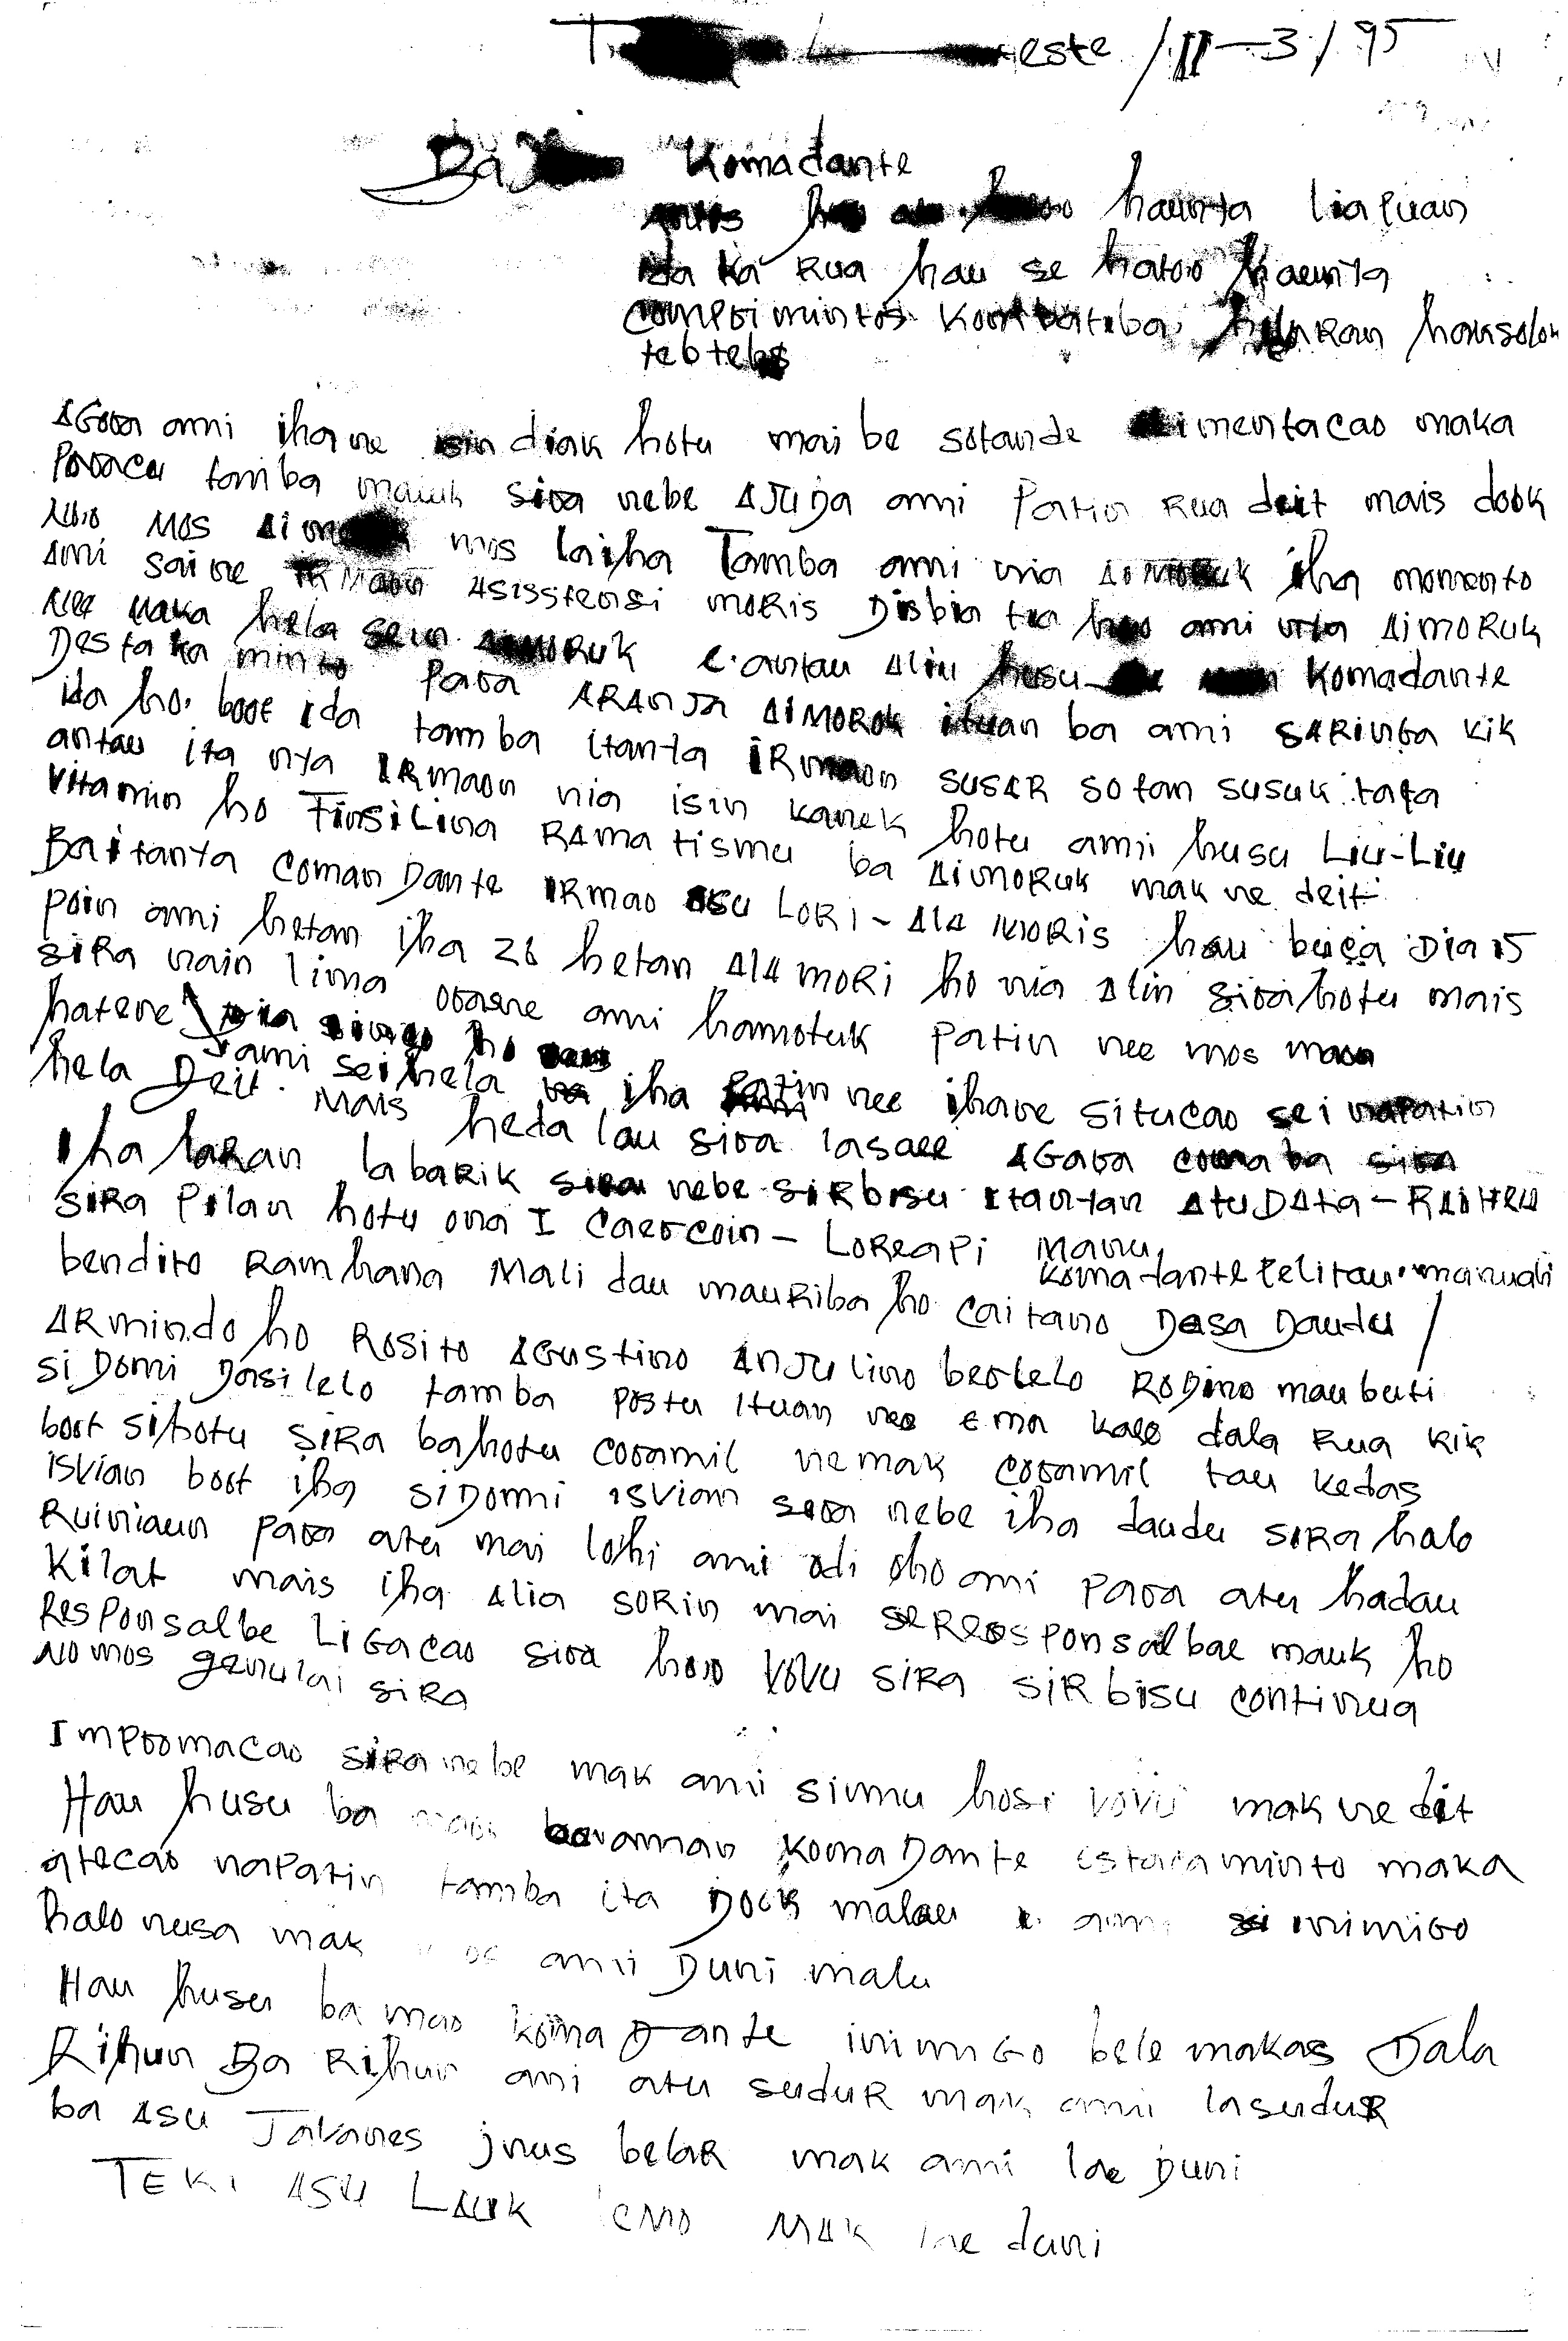 este / II - 3 / 95
Ba Komadante
haunta liafuan
ida ka Rua hau se hatoo haunta
comprimintos Kombateba, hilaRan haksolok
tebtebs
AGora ami ihane isin diak hotu mai be sotande alimentacao maka
Poraca tamba mauk sira nebe AJUDA ami Patin Rua deit mais dook
Nuo MOS mos laiha Tamba ami nia aimoRuk iha momento
Ami saine IRMaon Asisstensi moRis Disbia tia hoo ami nia AimoRuk
Nee maka hela sein aimoRUK e.antau Aliu husu Komadante
Destakaminto Para ARANJA AIMORUK ituan ba ami SARINGA kik
ida ho. boot ida tamba itanta IRmaon SUSAR sotan susuk. tafa
antau ita nya IRmaon nia isin kanek hotu amii husu Liu-Liu
vitamin ho FinsiLina RAmatismu ba Aimoruk mak ne deit
Baitanta comanDante IRmao Asu LoRi-ALA MORIS hau beiça Dia 15
Poin ami hetan iha 26 hetan ALA moRi ho nia Alin sira hotu mais
siRa nain lima orasne ami hamotuk Patin nee mos maca
hatene
ami sei hela iha Patin nee ihane Situcao sei naPatin
hela Deit. Mais heda lau sira lasaee AGara coma ba sira
Iha laRan labaRik nebe siRbisu itantan AtuDAta - RAiHEU
siRa Pilan hotu ona I Caercoin - LoReaPi manu,
Komadante Felitau. manuali
bendito Ramhana Mali dau mauRiba ho Caitano Dasa Daudu /
ARmindo ho Rosito AGustino AnJulino bertelo RoDino maubuti
siDomi Dasilelo tamba Postu Ituan nee ema kaeo dala Rua kik
boot sihotu siRa bahotu coramil nemak coramil tau kedas
isvian boot iha siDomi isviam sira nebe iha daudu siRa halo
Ruiniaun Para atu mai lohi ami odi oho ami Para atu hadau
kilat mais iha Alia soRin mai seReosPonsalbae mauk ho
ResPonsalbe LiGacao sira hoo vovu siRa siRbisu continua
No mos genulai siRa
Improomacao siRa nebe mak ami simu hosi vovu mak ne deit
Hau husu ba mao boranman KomaDante Estacaminto maka
atecao naPatin tamba ita Dook malau e. ami si inimiGo
halo nusa mak ami Duni malu
Hau husu ba mao komaDante inimiGo bele makas Dala
Rihun Ba Rihun ami atu suduR mak ami lasuduR
ba Asu Javanes jnus belaR mak ami lae Duni
TEKI ASU LAUK ENO MAK lae duni